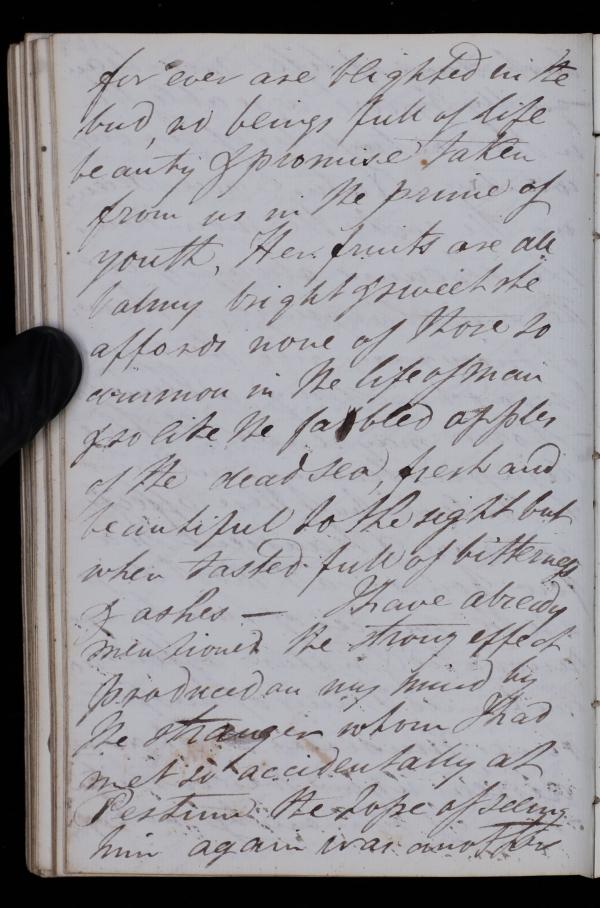 for ever are blighted in the
bud, no beings full of life
beauty & promise taken
from us in the prime of
youth, Her fruits are all
balmy bright & sweet she
affords none of those so
common in the life of man
& so like the fabled apples
of the dead sea, fresh and
beautiful to the sight but
when tasted full of bitterness
& ashes — I have already
mentioned the strong effect
produced on my mind by
the stranger whom I had
met so accidentally at
Pestum the hope of seeing
him again was another